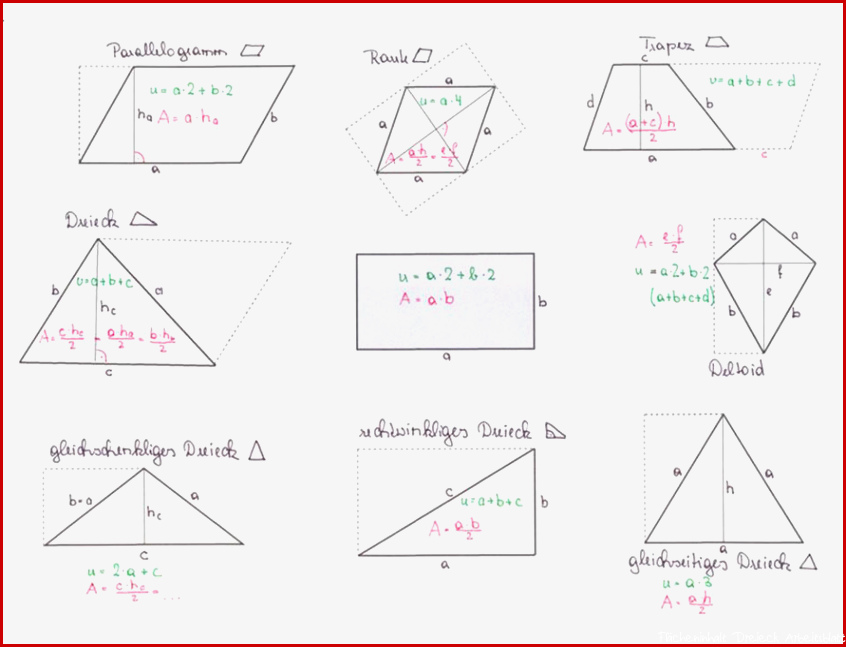 Parallelogramm
u = a·2 + b·2
ha A = a·ha
b
a
Raute
a
u = a·4
a
a
A = a·h/2 = e·f/2
a
Trapez
c
u = a+b+c+d
d
h
b
A = (a+c)·h/2
a
c
Dreieck
u = a+b+c
b
a
hc
A = c·hc/2 = a·ha/2 = b·hb/2
c
u = a·2 + b·2
A = a·b
b
a
A = e·f/2
u = a·2 + b·2
(a+b+c+d)
a
a
f
e
b
b
Deltoid
gleichschenkliges Dreieck
b=a
a
hc
c
u = 2·a + c
A = c·hc/2 = ...
rechtwinkliges Dreieck
c
u = a+b+c
b
A = a·b/2
a
a
a
h
a
gleichseitiges Dreieck
u = a·3
A = a·h/2